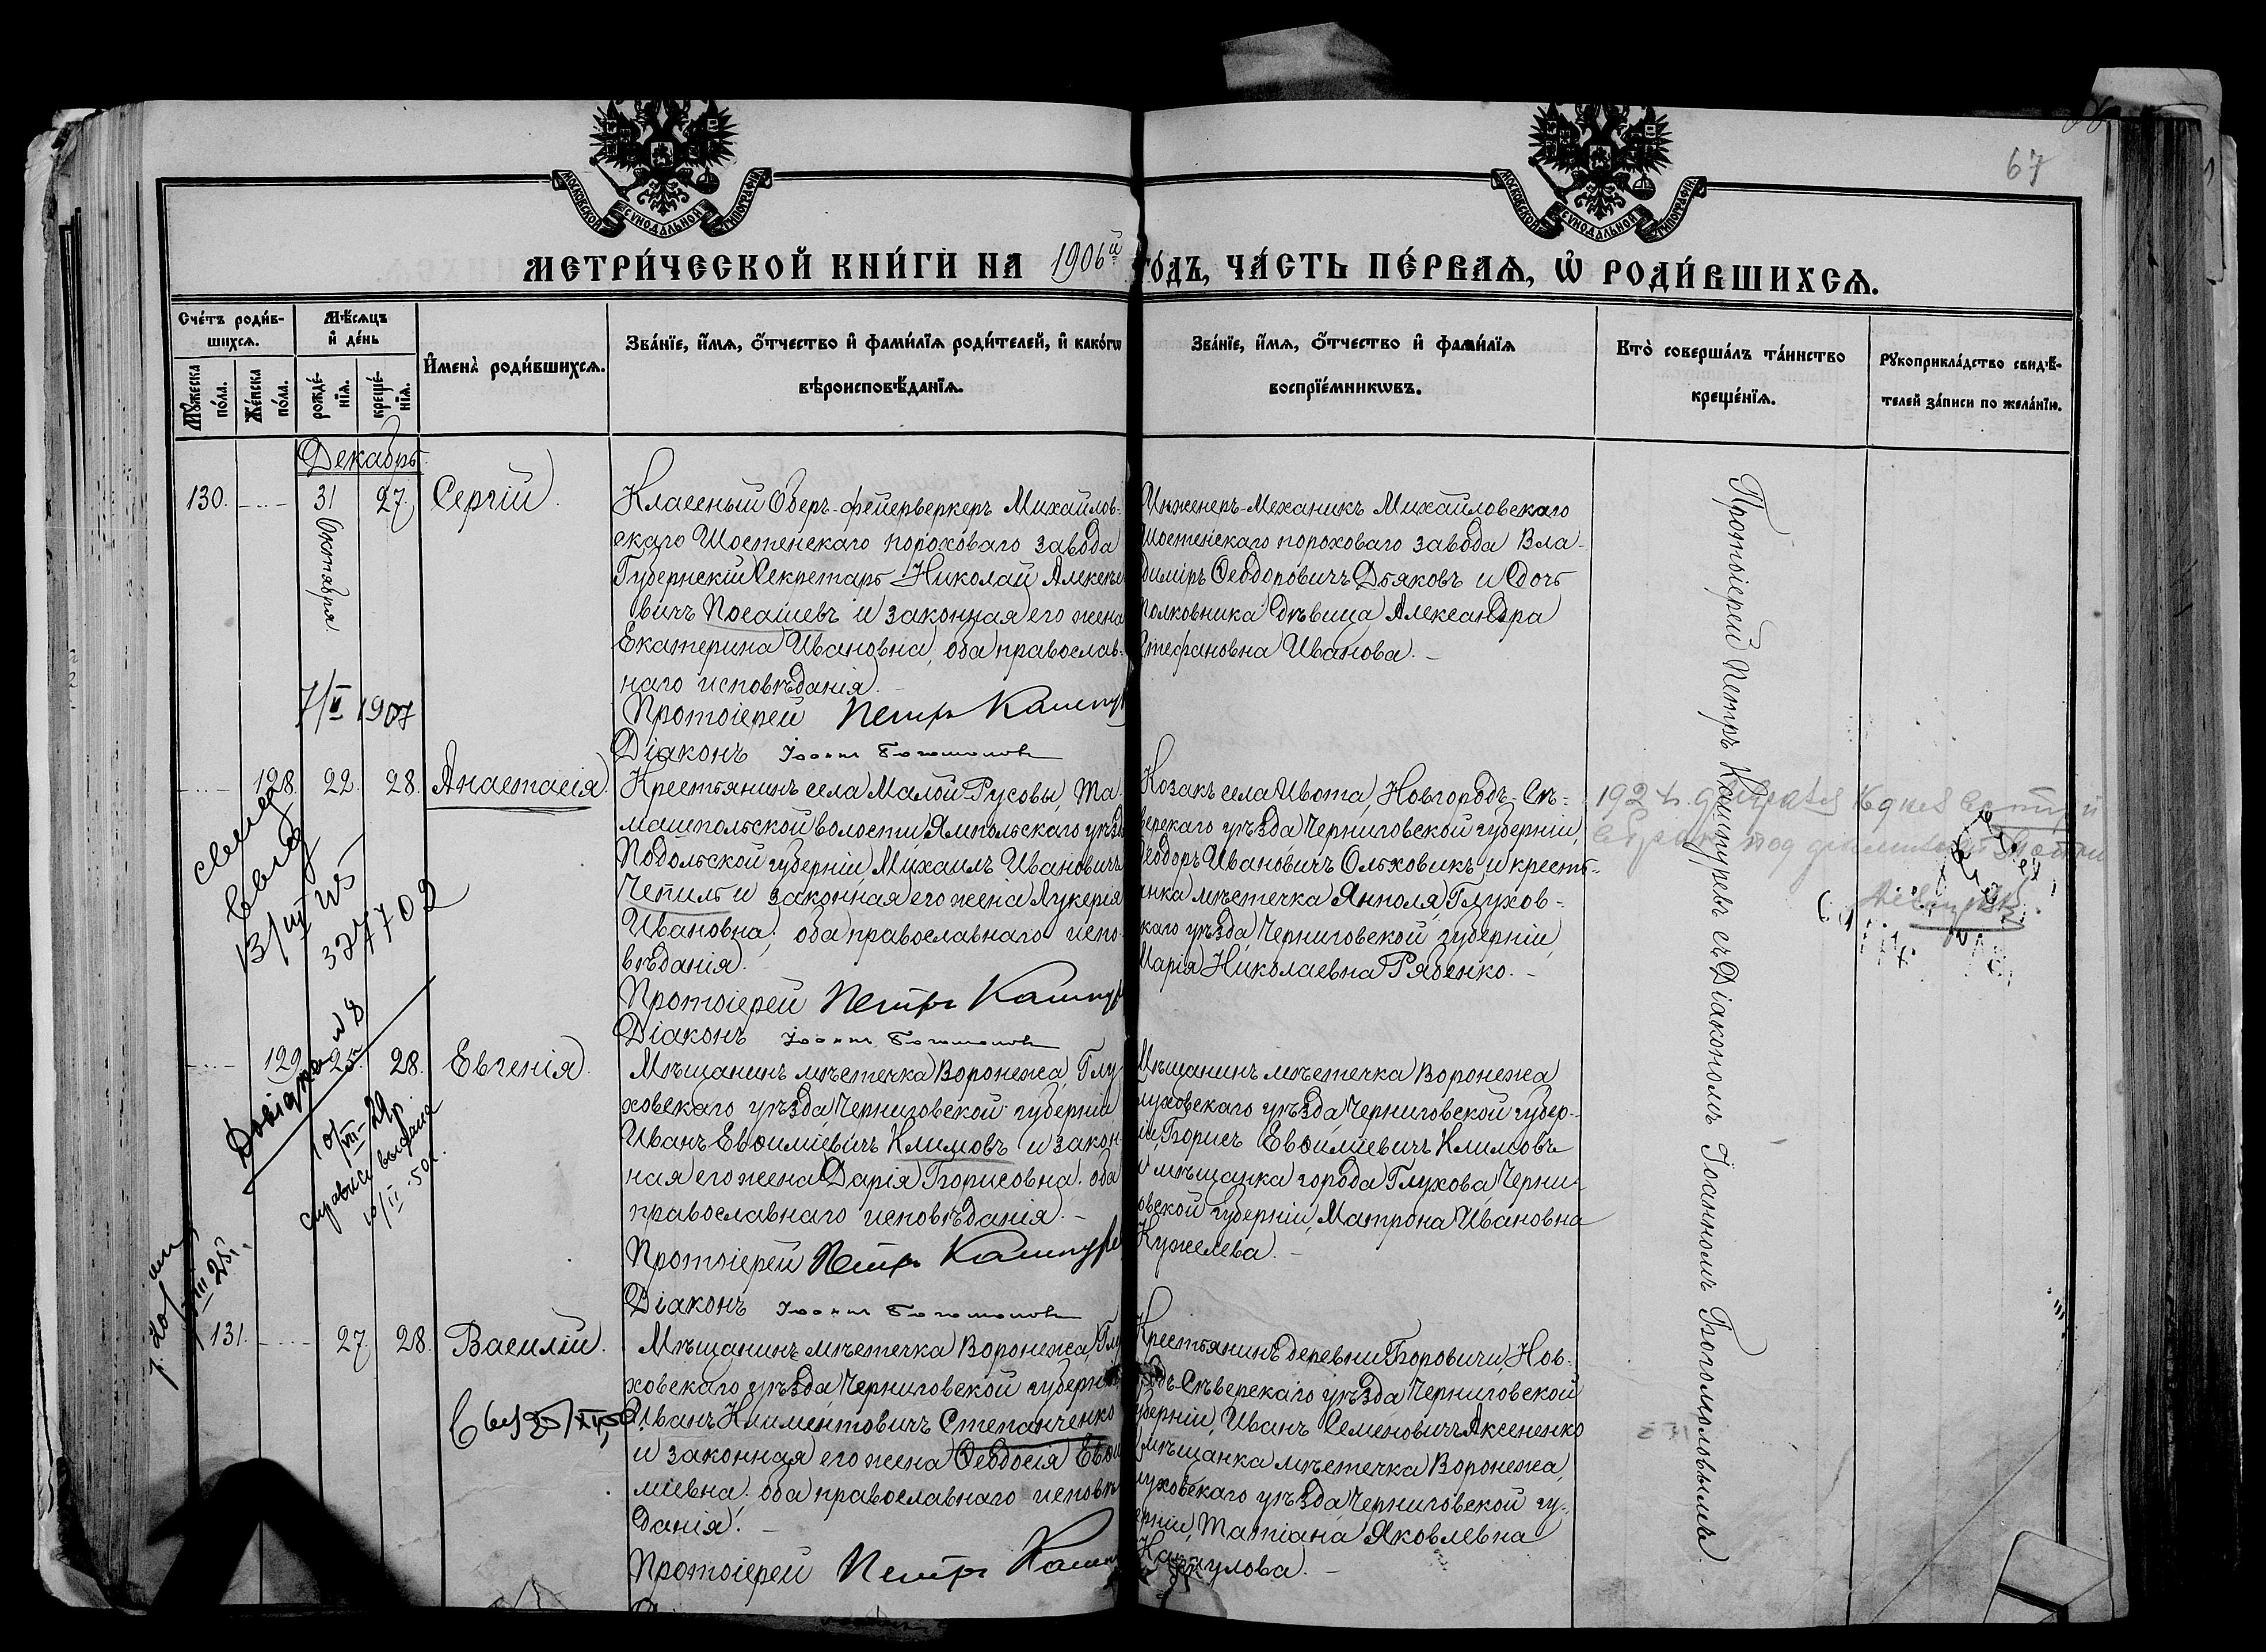 67
МОСКОВСКОЙ СѴНОДАЛЬНОЙ ТИПОГРАФІИ.
МОСКОВСКОЙ СѴНОДАЛЬНОЙ ТИПОГРАФІИ.
МЕТРИ́ЧЕСКОЙ КНИ́ГИ НА 1906й ГО́ДЪ, ЧА́СТЬ ПЕ́РВАѦ, Ѡ҆ РОДИ́ВШИХСѦ.
Сче́тъ роди́в-
шихсѧ.
Мꙋ́жеска по́ла.
Же́нска по́ла.
Мѣ́сѧцъ
и҆ де́нь
рожде́-
нїѧ.
креще́-
нїѧ.
И҆мена̀ роди́вшихсѧ.
Зва́нїе, и҆́мѧ, ѻ҆́тчество и҆ фами́лїѧ роди́телей, и҆ како́гѡ
вѣроисповѣ́данїѧ.
Зва́нїе, и҆́мѧ, ѻ҆́тчество и҆ фами́лїѧ
воспрїе́мникѡвъ.
Кто̀ соверша́лъ та́инство
креще́нїѧ.
Рꙋкоприкла́дство свидѣ́-
телей за́писи по жела́нїю.
Декабрь.
130. 31 Октября. 27. Сергій.
Классный Оберъ-фейерверкеръ Михайлов-
скаго Шостенскаго пороховаго завода
Губернскій Секретарь Николай Алексѣе
вичъ Посашевъ и законная его жена
Екатерина Ивановна, оба православ-
наго исповѣданія.
Протоіерей Петръ Кашпур
Діаконъ Іоаннъ Богомоловъ
Инженеръ-Механикъ Михайловскаго
Шостенскаго пороховаго завода Вла-
димiръ Ѳеодоровичъ Дьяковъ и дочь
полковника дѣвица Александра
Стефановна Иванова. –
7/II 1907
128. 22. 28. Анастасія.
Крестьянинъ села Малой-Русовы, То-
машпольской волости, Ямпольскаго уѣзд
Подольской губерніи, Михаилъ Ивановичъ
Чепиль и законная его жена Лукерія
Ивановна; оба православнаго испо-
вѣданія.
Протоіерей Петръ Кашпур
Діаконъ Іоаннъ Богомоловъ
Козакъ села Ивота, Новгородъ-Сѣ-
верскаго уѣзда, Черниговской губерніи,
Ѳеодоръ Ивановичъ Ольховикъ и кресть-
янка мѣстечка Янполя, Глухов-
скаго уѣзда, Черниговской губерніи,
Марія Николаевна Рябенко. –
13/VII 25
327702
129. 25. 28. Евгенія.
Мѣщанинъ мѣстечка Воронежа, Глу
ховскаго уѣзда, Черниговской губерніи
Иванъ Евѳиміевичъ Климовъ и закон-
ная его жена Дарія Борисовна, оба
православнаго исповѣданія. –
Протоіерей Петръ Кашпуре
Діаконъ Іоаннъ Богомоловъ
Мѣщанинъ мѣстечка Воронежа
луховскаго уѣзда Черниговской губер-
ніи, Борисъ Евѳиміевичъ Климовъ
и мѣщанка города Глухова, Черни-
говской губерніи, Матрона Ивановна
Кужелева. –
10/VII-29р.
10/II-50г.
131. 27. 28. Василій.
Мѣщанинъ мѣстечка Воронежа, Глу
ховскаго уѣзда, Черниговской губерніи
Иванъ Климентовичъ Степанченко
и законная его жена Ѳеодосія Евѳи
міевна; оба православнаго исповѣ
данія. –
Протоіерей Петръ Кашп
Крестьянинъ деревни Боровичи, Нов-
дъ-Сѣверскаго уѣзда Черниговской
губерніи, Иванъ Семеновичъ Аксененко
мѣщанка мѣстечка Воронежа,
луховскаго уѣзда, Черниговской гу-
берніи, Татіана Яковлевна
Протоіерей Петръ Кашпуревъ съ Діакономъ Іоанномъ Богомоловымъ.